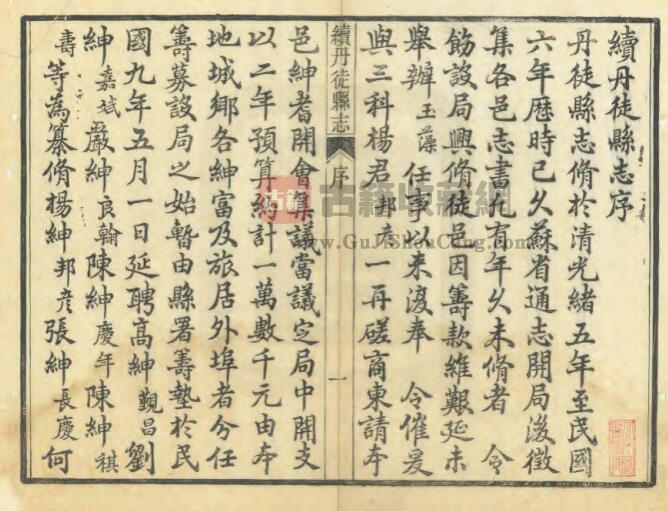 續丹徒縣志序
丹徒縣志脩於清光緒五年至民國
六年厯時已久蘇省通志開局後徵
集各邑志書凡有年久未脩者 令
飭設局興脩徒邑因籌款維艱延未
舉辦玉藻任事以來復奉 令催爰
與三科楊君邦彥一再磋商柬請本
續丹徒縣志 序 一
邑紳耆開會集議當議定局中開支
以二年預算約計一萬數千元由本
地城鄉各紳富及旅居外埠者分任
籌募設局之始暫由縣署籌墊於民
國九年五月一日延聘高紳覲昌劉
紳嘉斌嚴紳良翰陳紳慶年陳紳祺
壽等為纂脩楊紳邦彥張紳長慶何
古籍
古籍收藏網
www.GuJiShouCang.com